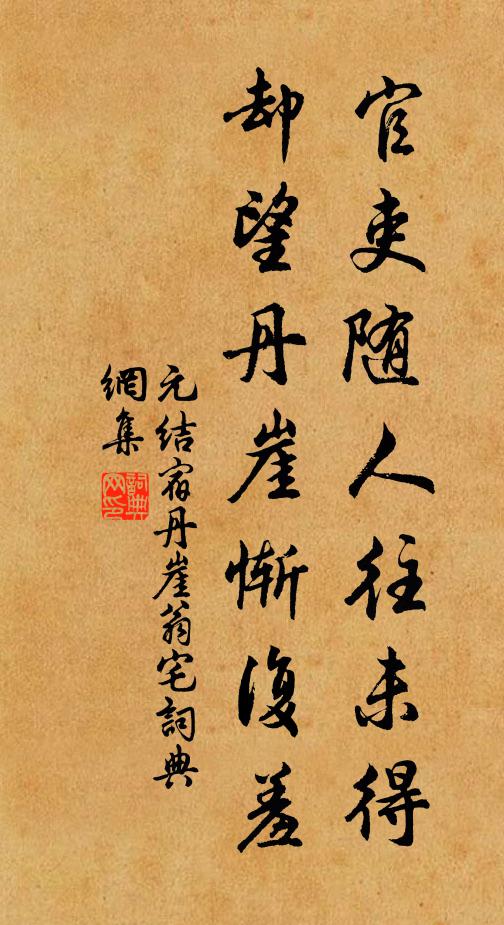 官吏随人往未得
却望丹崖慚復羞
元结宿丹崖翁宅詞典
網集
詞典
网印